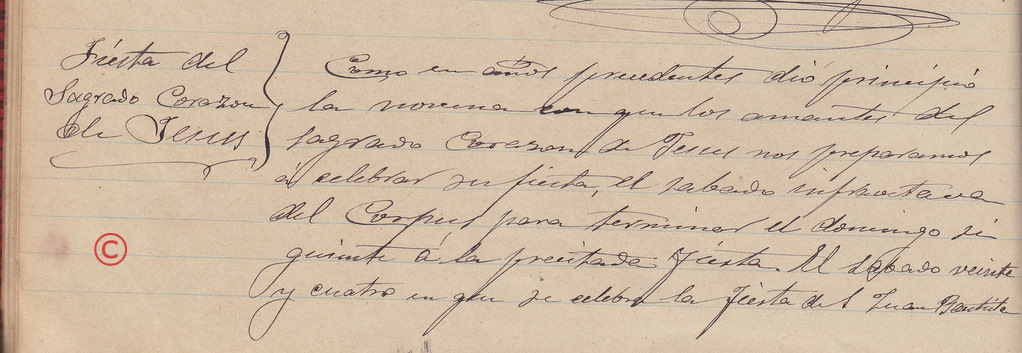 Fiesta del
Sagrado Corazon
de Jesus
Como en años precedentes dió principio
la novena con que los amantes del
sagrado Corazon de Jesus nos preparamos
á celebrar su fiesta, el sabado infraoctava
del Corpus, para terminar el domingo si
guiente á la precitada fiesta. El sabado veinte
y cuatro en que se celebra la fiesta de S Juan Bautista
©